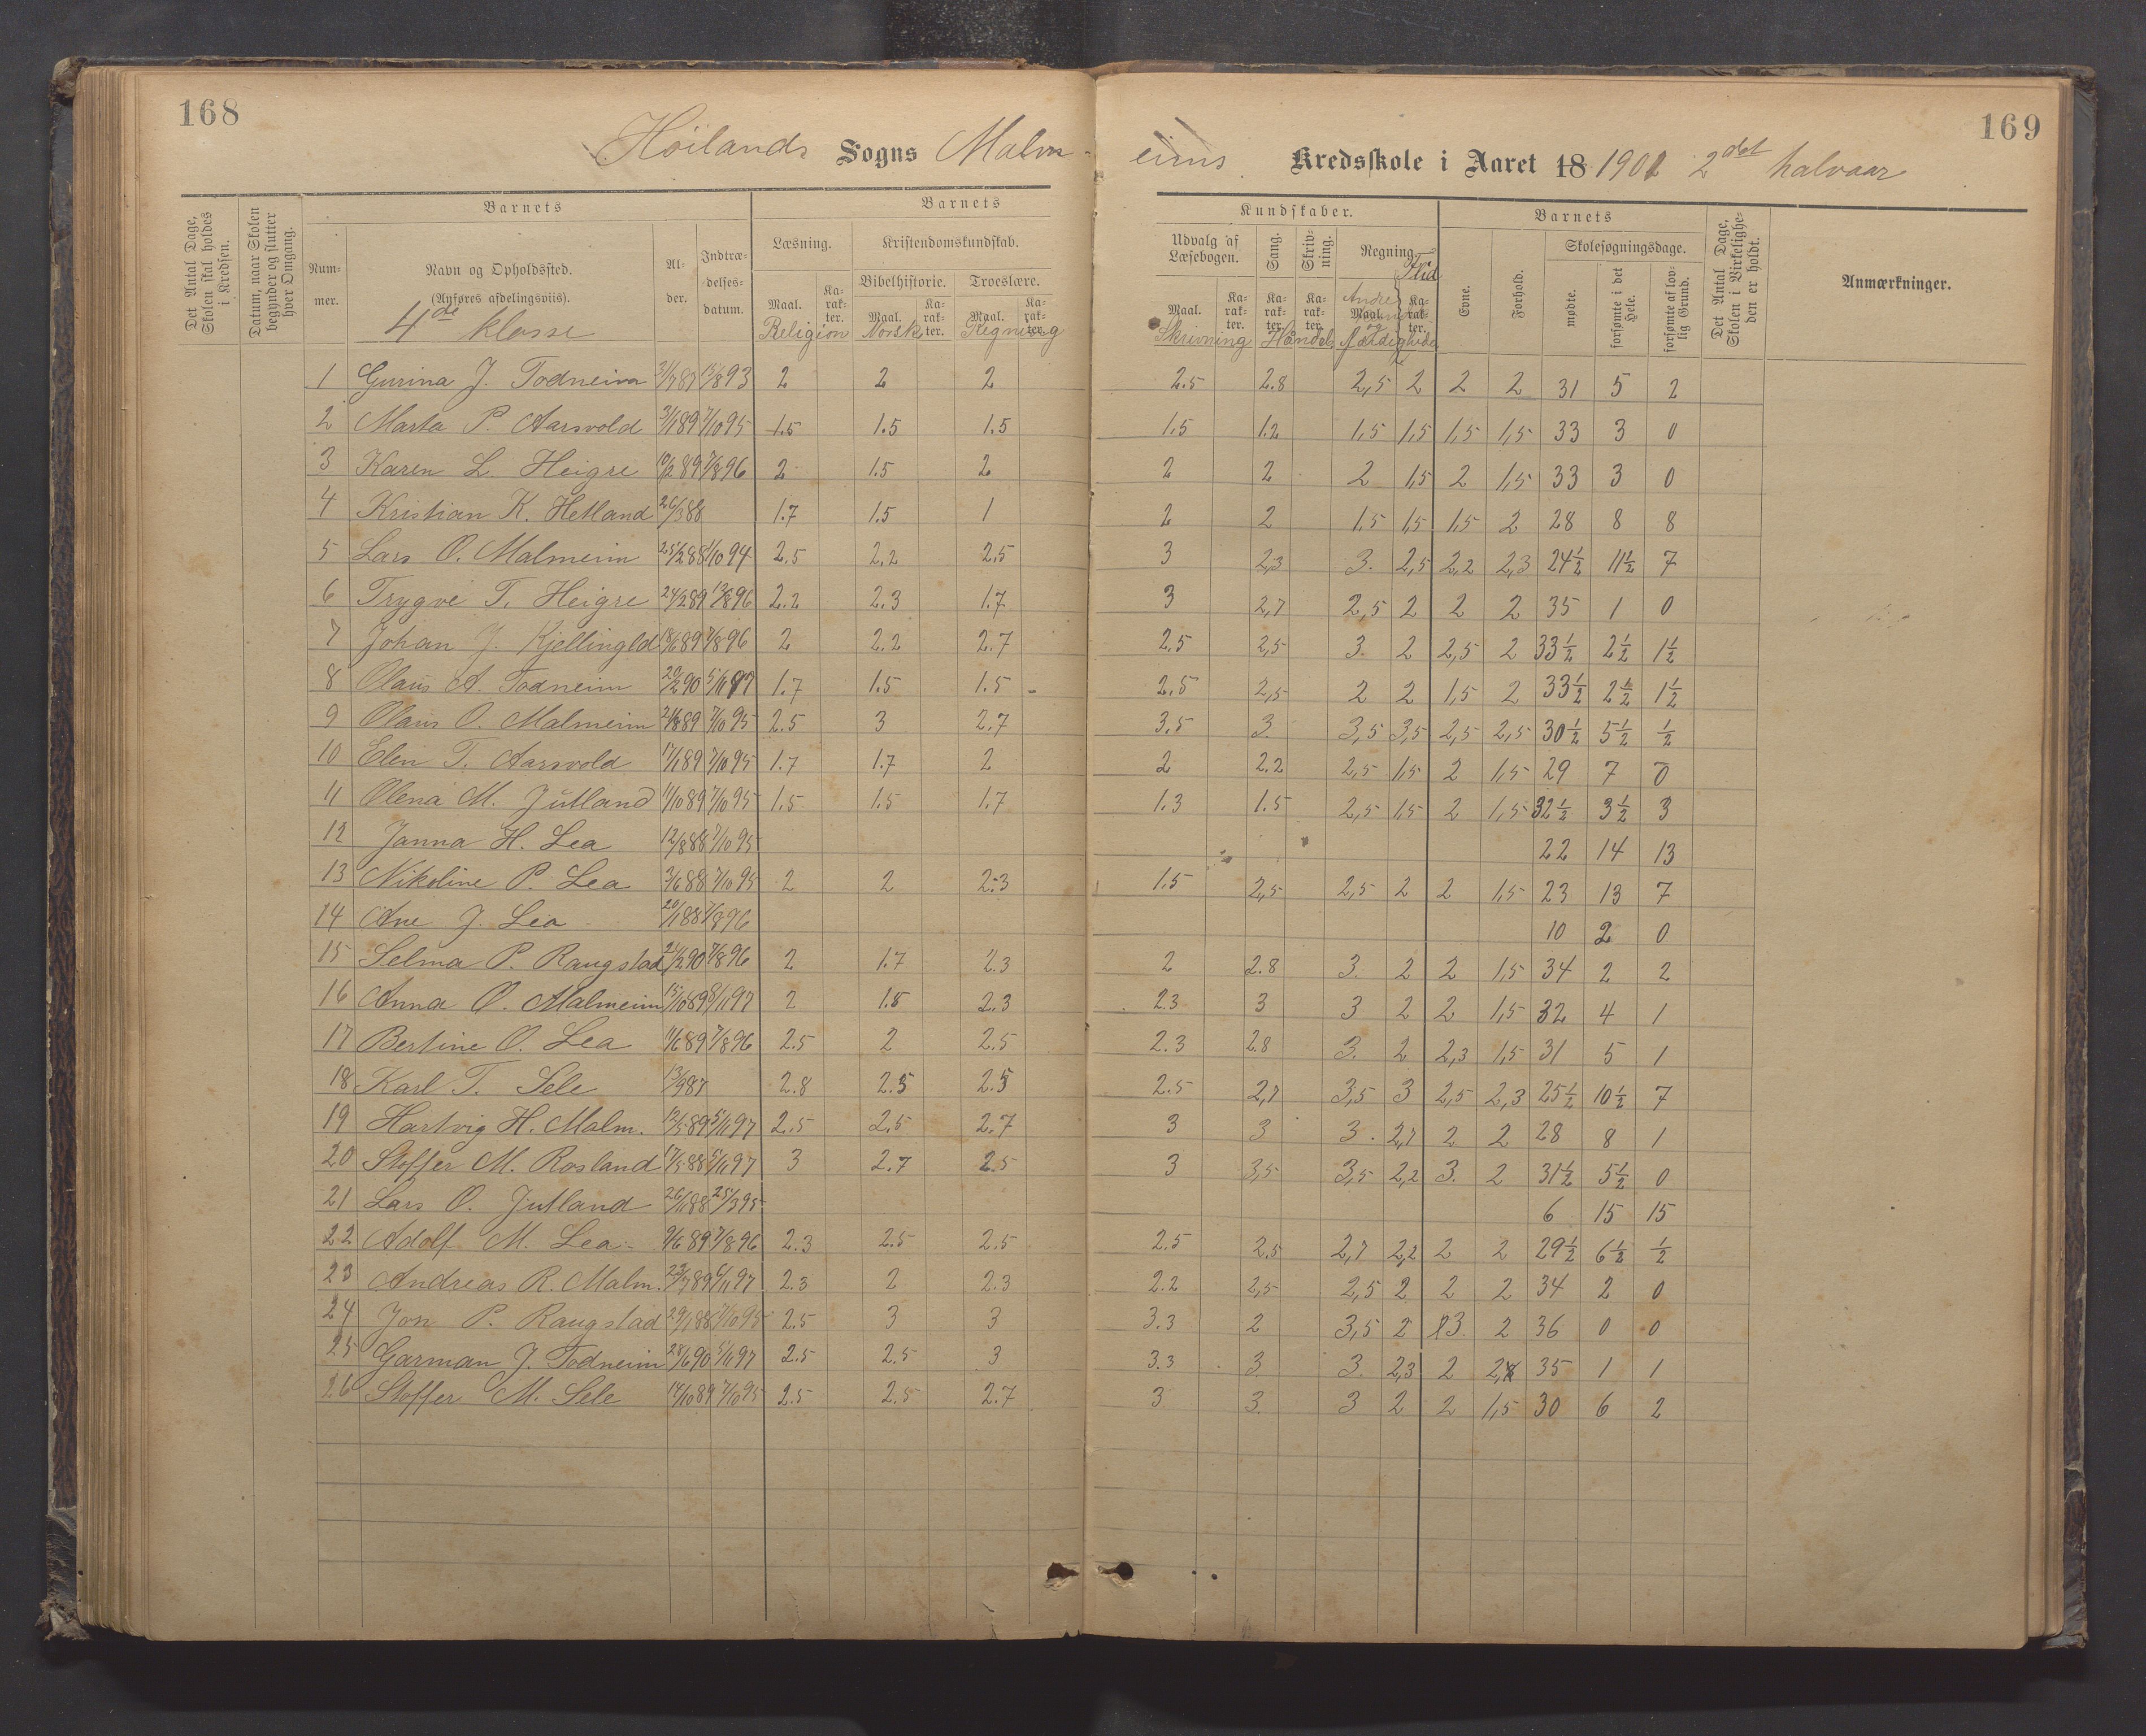 168
169
Höilands Sogns Malm-
eims Kredsskole i Aaret 18 1901 2det halvaar
Det Antal Dage, Skolen skal holdes i Kredsen.
Datum, naar Skolen begynder og slutter hver Omgang.
Barnets
Barnets
Kundskaber.
Barnets
Det Antal Dage, Skolen i Virkeligheden er holdt.
Anmærkninger.
Nummer.
Navn og Opholdssted.
(Anføres afdelingsviis).
4de klasse
Alder.
Indtrædelses-datum.
Læsning.
Kristendomskundskab.
Bibelhistorie.
Troeslære.
Udvalg af Læsebogen.
Sang.
Skrivning.
Regning.
Flid
Evne.
Forhold.
Skolesøgningsdage.
mødte.
forsømte i det Hele.
forsømte af lovlig Grund.
Maal. Karakter. Maal. Karakter. Maal. Karakter. Maal. Karakter. Karakter. Karakter. Maal. Karakter.
Religion Norsk Regning Skrivning Haandel Andre og færdigheder
1 Gurina J. Todneim 87 93 2 2 2 2.5 2.8 2,5 2 2 2 31 5 2
2 Marta P. Aarsvold 3/1 89 7/10 95 1.5 1.5 1.5 1.5 1.2 1,5 1,5 1,5 1,5 33 3 0
3 Karen L. Heigre 10/2 89 7/8 96 2 1.5 2 2 2 2 1,5 2 1,5 33 3 0
4 Kristian K. Hetland 26/3 88 1.7 1.5 1 2 2 1,5 1,5 1,5 2 28 8 8
5 Lars O. Malmeim 25/2 88 1/10 94 2.5 2,2 2.5 3 2,3 3. 2,5 2,2 2,3 24½ 11½ 7
6 Trygve T. Heigre 24/2 89 13/8 96 2.2 2.3 1.7 3 2,7 2,5 2 2 2 35 1 0
7 Johan J. Kjellingld 18/6 89 7/8 96 2 2.2 2.7 2.5 2,5 3. 2 2,5 2 33½ 2½ 1½
8 Olaus A. Todneim 20/2 90 5/11 97 1.7 1.5 1.5 2.5 2,5 2 2 1,5 2 33½ 2½ 1½
9 Olaus O. Malmeim 89 7/10 95 2.5 3 2.7 3.5 3. 3,5 3,5 2,5 2,5 30½ 5½ ½
10 Elin T. Aarsvold 17/1 89 7/10 95 1.7 1.7 2 2 2.2 2,5 1,5 2 1,5 29 7 0
11 Olena M. Jutland 11/10 89 7/10 95 1.5 1.5 1.7 1.3 1.5 2,5 1,5 2 1,5 32½ 3½ 3
12 Janna H. Lea 12/8 88 7/10 95 22 14 13
13 Nikoline P. Lea 3/6 88 7/10 95 2 2 2.3 1.5 2,5 2,5 2 2 1,5 23 13 7
14 Ane J. Lea 20/1 88 7/8 96 10 2 0
15 Selma P. Raugstad 21/2 90 7/8 96 2 1.7 2.3 2 2.8 3. 2 2 1,5 34 2 2
16 Anna O. Malmeim 15/10 89 8/11 97 2 1.8 2.3 2.3 3 3 2 2 1,5 32 4 1
17 Bertine O. Lea 11/6 89 7/8 96 2.5 2 2.5 2.3 2.8 3. 2 2,3 1,5 31 5 1
18 Karl T. Sele 13/9 87 2.8 2.5 2.5 2.5 2,7 3,5 3 2,5 2,3 25½ 10½ 7
19 Hartvig H. Malm. 12/5 89 5/11 97 2.5 2,5 2.7 3 3 3. 2,7 2 2 28 8 1
20 Stoffer M. Rosland 17/5 88 5/11 97 3 2.7 2.5 3 3,5 3,5 2,2 3. 2 31½ 5½ 0
21 Lars O. Jutland 26/11 88 25/3 95 6 15 15
22 Adolf M. Lea 9/6 89 7/8 96 2.3 2.5 2.5 2.5 2.5 2,7 2,2 2 2 29½ 6½ ½
23 Andreas R. Malm. 23/7 89 6/11 97 2.3 2 2.3 2.2 2,5 2,5 2 2 2 34 2 0
24 Jon P. Raugstad 29/1 88 7/10 95 2.5 3 3 3.3 2 3,5 2 3. 2 36 0 0
25 Garman J. Todneim 28/6 90 5/11 97 2.5 2.5 3 3.3 3. 3. 2,3 2 2, 35 1 1
26 Stoffer M. Sele 14/10 89 7/10 95 2.5 2.5 2.7 3 3. 3 2 2 1,5 30 6 2